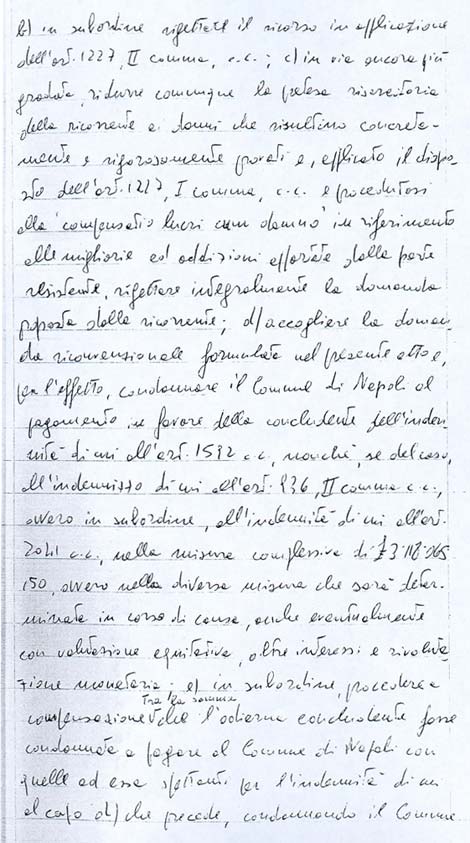 b) in subordine rigettare il ricorso in applicazione
dell'art. 1227, II comma, c.c.; c) in via ancora più
gradata, ridurre comunque la pretesa risarcitoria
della ricorrente a danni che risultino concreta-
mente e rigorosamente provati e, applicato il dispo-
sto dell'art. 1227, I comma, c.c. e procedutosi
alla "compensatio lucri cum damno" in riferimento
alle migliorie ed addizioni apportate dalla parte
resistente, rigettare integralmente la domanda
proposta dalla ricorrente; d) accogliere la doman-
da riconvenzionale formulata nel presente atto e,
per l'effetto, condannare il Comune di Napoli al
pagamento in favore della concludente dell'inden-
nità di cui all'art. 1592 c.c., nonché, se del caso,
all'indennizzo di cui all'art. 936, II comma c.c.,
ovvero in subordine, all'indennità di cui all'art.
2041 c.c., nella misura complessiva di £ 3.118.065
150, ovvero nella diversa misura che sarà deter-
minata in corso di causa, anche eventualmente
con valutazione equitativa, oltre interessi e rivaluta-
zione monetaria; e) in subordine, procedere a
compensazione tra la somma che l'odierna concludente fosse
condannata a pagare al Comune di Napoli con
quelle ad essa spettanti per l'indennità di cui
al capo d) che precede, condannando il Comune